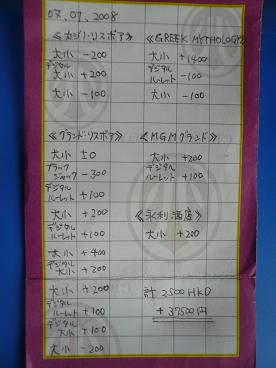 07.07.2008
《カジノ・リスボア》
大小 -200
デジタル
大小 +200
大小 -100
《GREEK MYTHOLOGY》
大小 +1400
デジタル
ルーレット -100
大小 -100
《グランド・リスボア》
大小 ±0
ブラック
ジャック -300
デジタル
ルーレット +100
大小 +200
デジタル
ルーレット +100
大小 +400
デジタル
大小 +200
大小 +200
デジタル
ルーレット +100
デジタル
大小 +100
大小 -200
《MGMグランド》
大小 +200
デジタル
ルーレット +100
《永利酒店》
大小 +200
計 2500HKD
+37500円